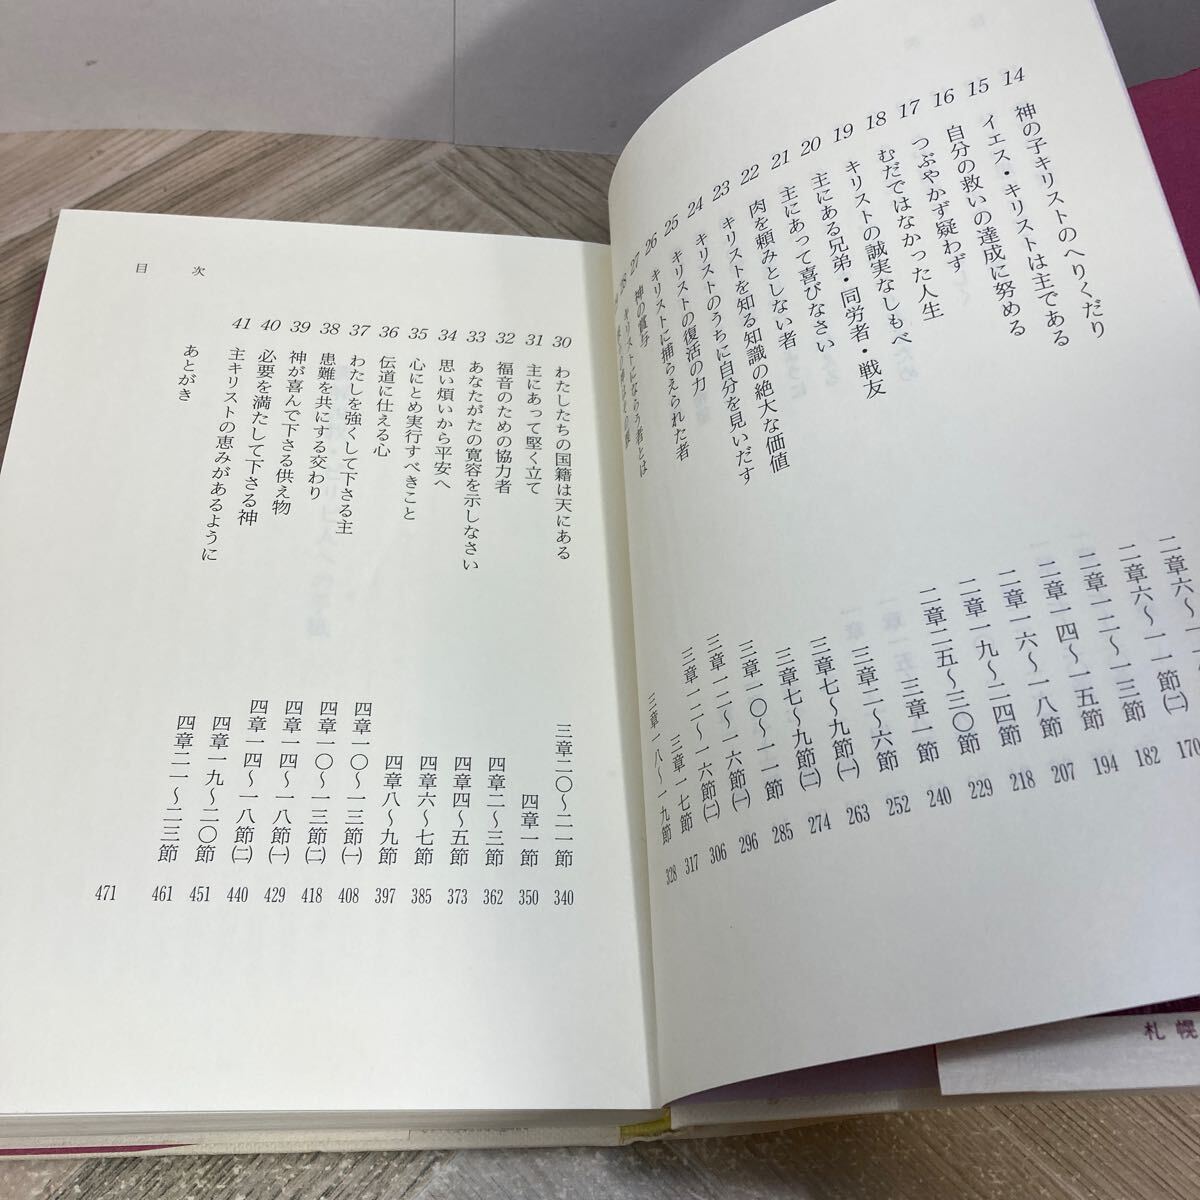 14 神の子キリストのへりくだり 二章六〜一
15 イエス・キリストは主である 二章六〜一一節㈡ 170
16 自分の救いの達成に努める 二章一二〜一三節 182
17 つぶやかず疑わず 二章一四〜一五節 194
18 むだではなかった人生 二章一六〜一八節 207
19 キリストの誠実なしもべ 二章一九〜二四節 218
20 主にある兄弟・同労者・戦友 二章二五〜三〇節 229
21 主にあって喜びなさい 三章一節 240
22 肉を頼みとしない者 三章二〜六節 252
23 キリストを知る知識の絶大な価値 三章七〜九節㈠ 263
24 キリストのうちに自分を見いだす 三章七〜九節㈡ 274
25 キリストの復活の力 三章一〇〜一一節 285
26 キリストに捕らえられた者 三章一二〜一六節㈠ 296
27 神の賞与 三章一二〜一六節㈡ 306
28 キリストにならう者とは 三章一七節 317
三章一八〜一九節 328
30 わたしたちの国籍は天にある 三章二〇〜二一節 340
31 主にあって堅く立て 四章一節 350
32 福音のための協力者 四章二〜三節 362
33 あなたがたの寛容を示しなさい 四章四〜五節 373
34 思い煩いから平安へ 四章六〜七節 385
35 心にとめ実行すべきこと 四章八〜九節 397
36 伝道に仕える心 四章一〇〜一三節㈠ 408
37 わたしを強くして下さる主 四章一〇〜一三節㈡ 418
38 患難を共にする交わり 四章一四〜一八節㈠ 429
39 神が喜んで下さる供え物 四章一四〜一八節㈡ 440
40 必要を満たして下さる神 四章一九〜二〇節 451
41 主キリストの恵みがあるように 四章二一〜二三節 461
あとがき 471
目次
札幌